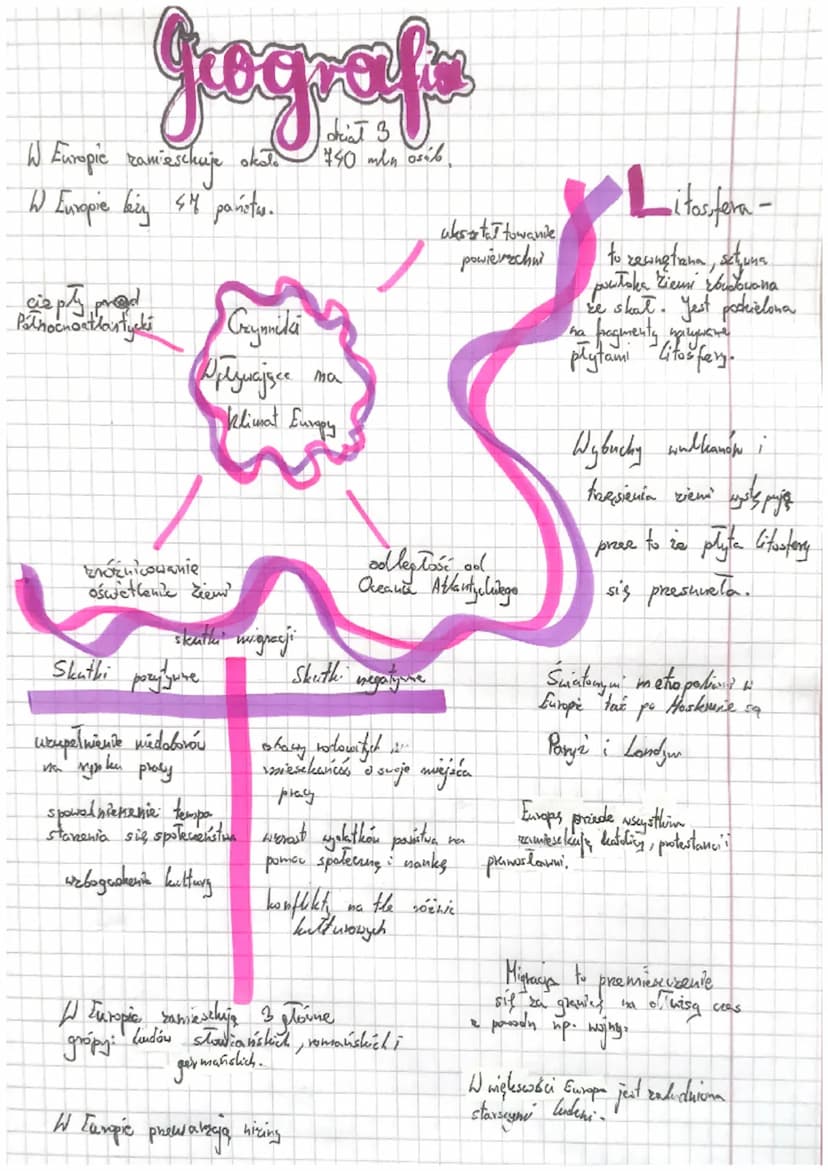 Geografia
dział 3
W Europie zamieszkuje około 740 mln osób.
W Europie leży 47 państw.
ukształtowanie
powierzchni
ciepły prąd
Północnoatlantycki
Czynniki
Wpływające na
klimat Europy
zróżnicowanie
oświetlenie Ziemi
odległość od
Oceanu Atlantyckiego
Litosfera -
to zewnętrzna, sztywna
powłoka Ziemi zbudowana
ze skał. Jest podzielona
na fragmenty nazywane
płytami litosfery.
Wybuchy wulkanów i
trzęsienia ziemi występują
przez to że płyta litosfery
się przesunęła.
skutki migracji
Skutki pozytywne
Skutki negatywne
uzupełnienie niedoborów
na rynku pracy
spowolnienienie tempa
starzenia się społeczeństwa
wzbogacenie kultury
obawy rodowitych
mieszkańców o swoje miejsca
pracy
wzrost wydatków państwa na
pomoc społeczną i naukę
konflikty na tle różnic
kulturowych
Światowymi metropoliami w
Europie też po Moskwie są
Paryż i Londyn
Europę przede wszystkim
zamieszkują katolicy, protestanci i
prawosławni.
Migracja to przemieszczenie
się za granicę na dłuższą czas
z powodu np. wojny.
W Europie zamieszkują 3 główne
grópy: ludów słowiańskich, romańskich i
germańskich.
W większości Europa jest zaludniona
starszymi ludźmi.
W Europie przeważają niziny